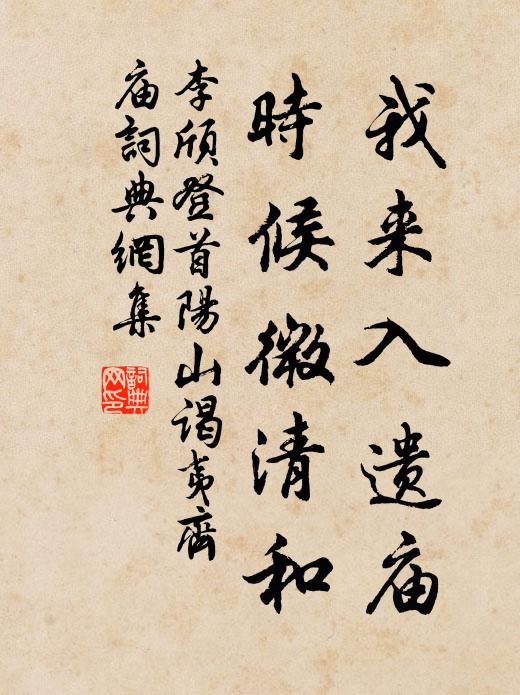 我来入遗庙
時候微清和
李頎登首陽山謁夷齊
庙詞典網集
詞典
网印